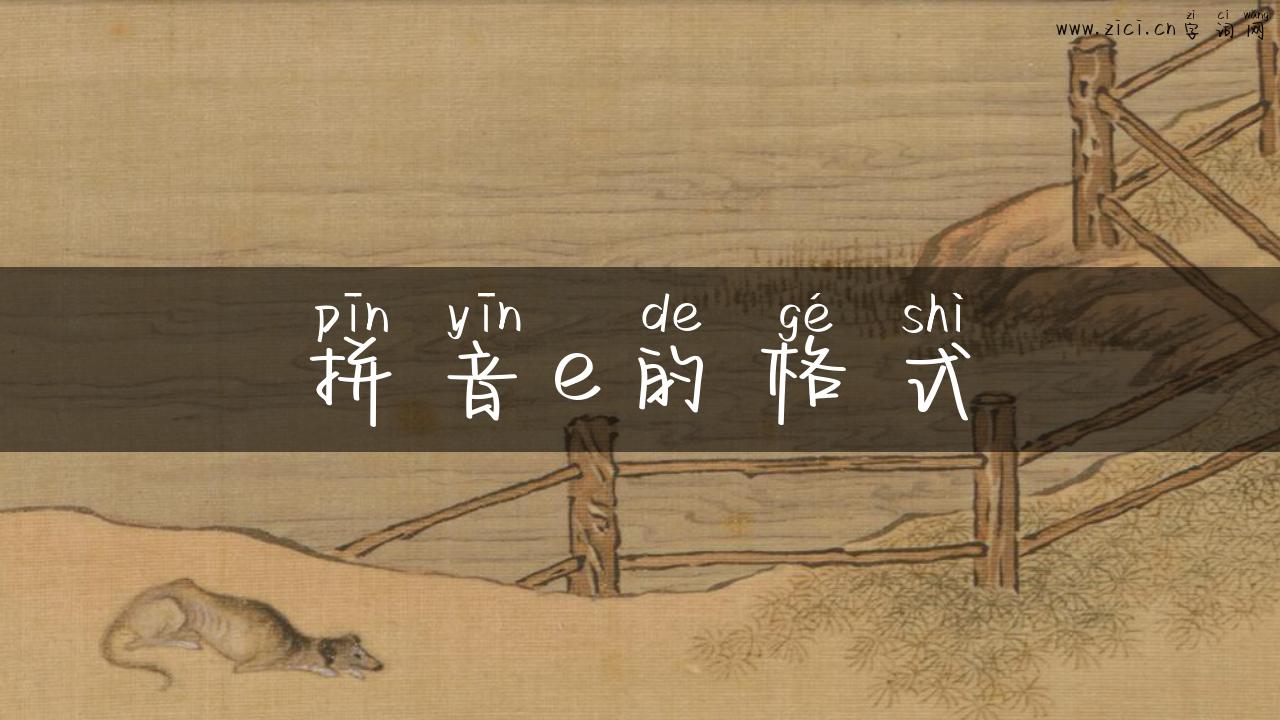 zì cí wǎng
www.zici.cn字词网
pīn yīn de gé shì
拼音e的格式